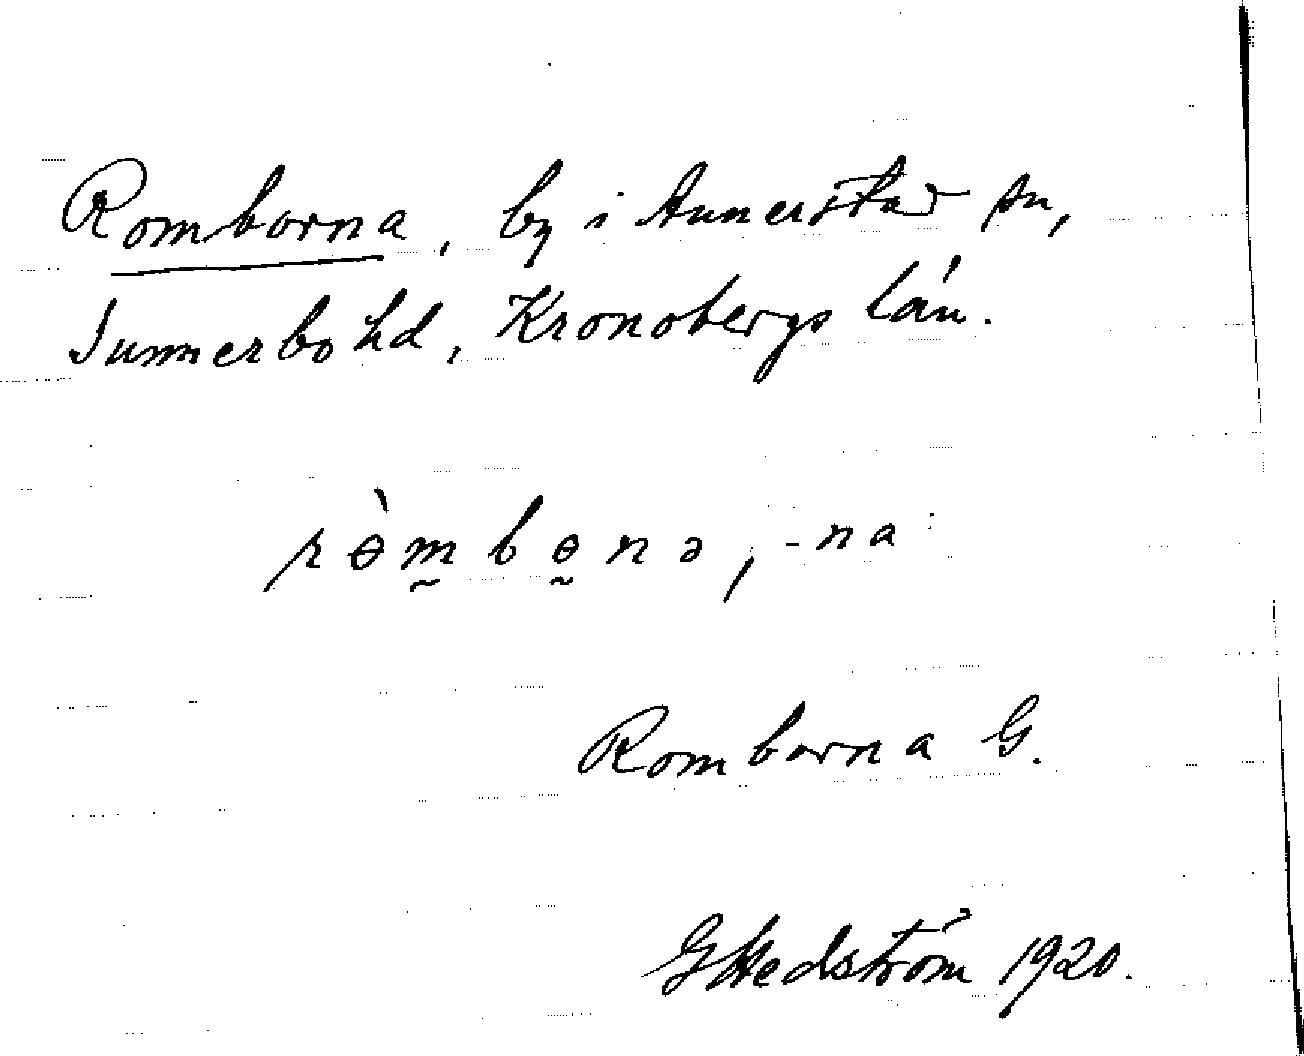 Romborna, by i Annerstad sn,
Sunnerbo hd, Kronobergs län.
rɵ̀m̰bɵ̰nə, -na
Romborna G.
G Hedström 1920.